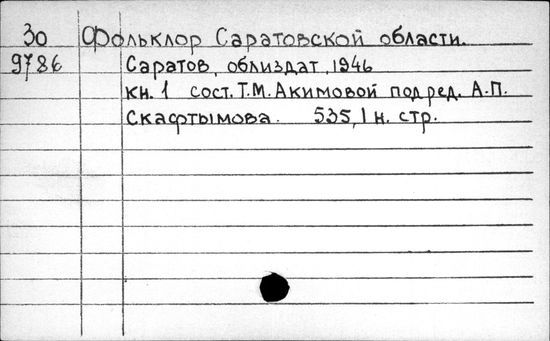 30 Фольклор Саратовской области.
9786 Саратов, облиздат, 1946
кн. 1 сост. Т.М. Акимовой под ред. А.П.
Скафтымова. 535, 1 н. стр.